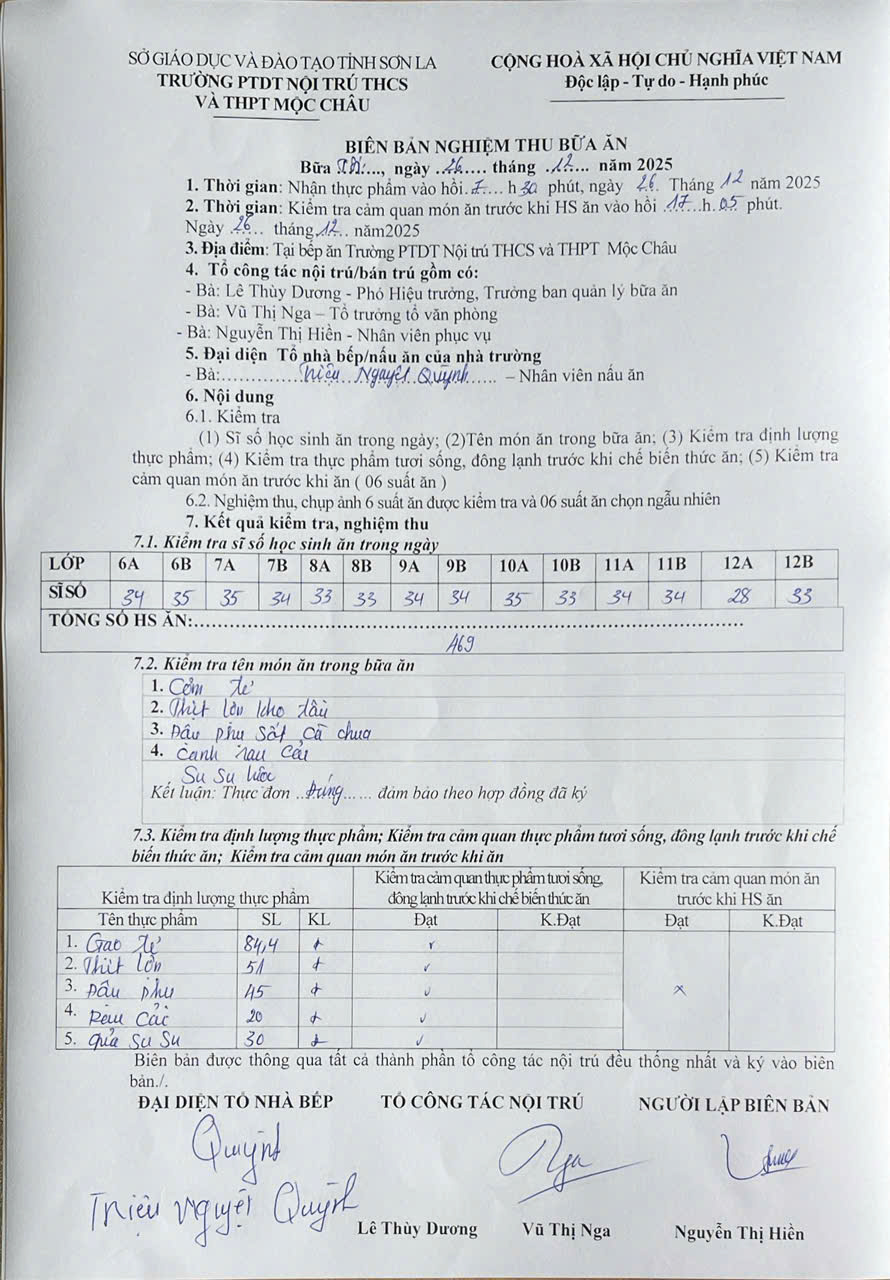 SỞ GIÁO DỤC VÀ ĐÀO TẠO TỈNH SƠN LA
TRƯỜNG PTDT NỘI TRÚ THCS
VÀ THPT MỘC CHÂU
CỘNG HOÀ XÃ HỘI CHỦ NGHĨA VIỆT NAM
Độc lập - Tự do - Hạnh phúc
BIÊN BẢN NGHIỆM THU BỮA ĂN
Bữa ...., ngày .26..... tháng .12.... năm 2025
1. Thời gian: Nhận thực phẩm vào hồi.7.... h 30 phút, ngày 26. Tháng 12 năm 2025
2. Thời gian: Kiểm tra cảm quan món ăn trước khi HS ăn vào hồi .17...h.05 phút.
Ngày .26... tháng.12.. năm2025
3. Địa điểm: Tại bếp ăn Trường PTDT Nội trú THCS và THPT Mộc Châu
4. Tổ công tác nội trú/bán trú gồm có:
- Bà: Lê Thùy Dương - Phó Hiệu trưởng, Trưởng ban quản lý bữa ăn
- Bà: Vũ Thị Nga – Tổ trưởng tổ văn phòng
- Bà: Nguyễn Thị Hiền - Nhân viên phục vụ
5. Đại diện Tổ nhà bếp/nấu ăn của nhà trường
- Bà:............Triệu Nguyệt Quỳnh...... – Nhân viên nấu ăn
6. Nội dung
6.1. Kiểm tra
(1) Sĩ số học sinh ăn trong ngày; (2)Tên món ăn trong bữa ăn; (3) Kiểm tra định lượng
thực phẩm; (4) Kiểm tra thực phẩm tươi sống, đông lạnh trước khi chế biến thức ăn; (5) Kiểm tra
cảm quan món ăn trước khi ăn ( 06 suất ăn )
6.2. Nghiệm thu, chụp ảnh 6 suất ăn được kiểm tra và 06 suất ăn chọn ngẫu nhiên
7. Kết quả kiểm tra, nghiệm thu
7.1. Kiểm tra sĩ số học sinh ăn trong ngày
LỚP 6A 6B 7A 7B 8A 8B 9A 9B 10A 10B 11A 11B 12A 12B
SĨ SỐ 34 35 35 34 33 33 34 34 35 33 34 34 28 33
TỔNG SỐ HS ĂN:..........................................................
469
7.2. Kiểm tra tên món ăn trong bữa ăn
1. Cơm tẻ
2. Thịt lợn kho tàu
3. Đậu phụ sốt cà chua
4. Canh rau cải
Su su luộc
Kết luận: Thực đơn ..Đúng...... đảm bảo theo hợp đồng đã ký
7.3. Kiểm tra định lượng thực phẩm; Kiểm tra cảm quan thực phẩm tươi sống, đông lạnh trước khi chế
biến thức ăn; Kiểm tra cảm quan món ăn trước khi ăn
Kiểm tra định lượng thực phẩm
Kiểm tra cảm quan thực phẩm tươi sống,
đông lạnh trước khi chế biến thức ăn
Kiểm tra cảm quan món ăn
trước khi HS ăn
Tên thực phẩm SL KL Đạt K.Đạt Đạt K.Đạt
1. Gạo tẻ 84,4 + ✓
2. Thịt lợn 51 + ✓
3. Đậu phụ 45 + ✓ x
4. Rau Cải 20 + ✓
5. Quả Su Su 30 + ✓
Biên bản được thông qua tất cả thành phần tổ công tác nội trú đều thống nhất và ký vào biên
bản./.
ĐẠI DIỆN TỔ NHÀ BẾP TỔ CÔNG TÁC NỘI TRÚ NGƯỜI LẬP BIÊN BẢN
Quỳnh Nga
Triệu Nguyệt Quỳnh
Lê Thùy Dương Vũ Thị Nga Nguyễn Thị Hiền